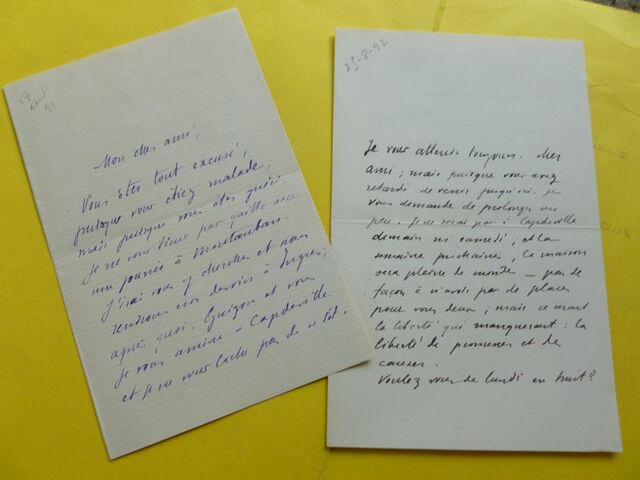 17
91
Mon cher ami,
Vous êtes tout excusé,
puisque vous étiez malade,
mais puisque vous êtes guéri
Je ne vous tiens pas quitte avec
une journée à Montauban.
J'irai vous y chercher et nous
rendrons nos devoirs à Ingres;
après quoi, et vous
Je vous amène à Capdeville
et je ne vous lache pas de si tôt.
25-8-92
Je vous attends toujours, cher
ami; mais puisque vous avez
retardé de venir jusqu'ici je
vous demande de prolonger un
peu. Je ne serai pas à Capdeville
demain ni samedi, et la
semaine prochaine, la maison
sera pleine de monde — pas de
façon à n'avoir pas de place
pour vous deux; mais ce serait
la liberté qui manquerait: la
liberté de promener et de
causer.
Voulez vous de lundi en huit?